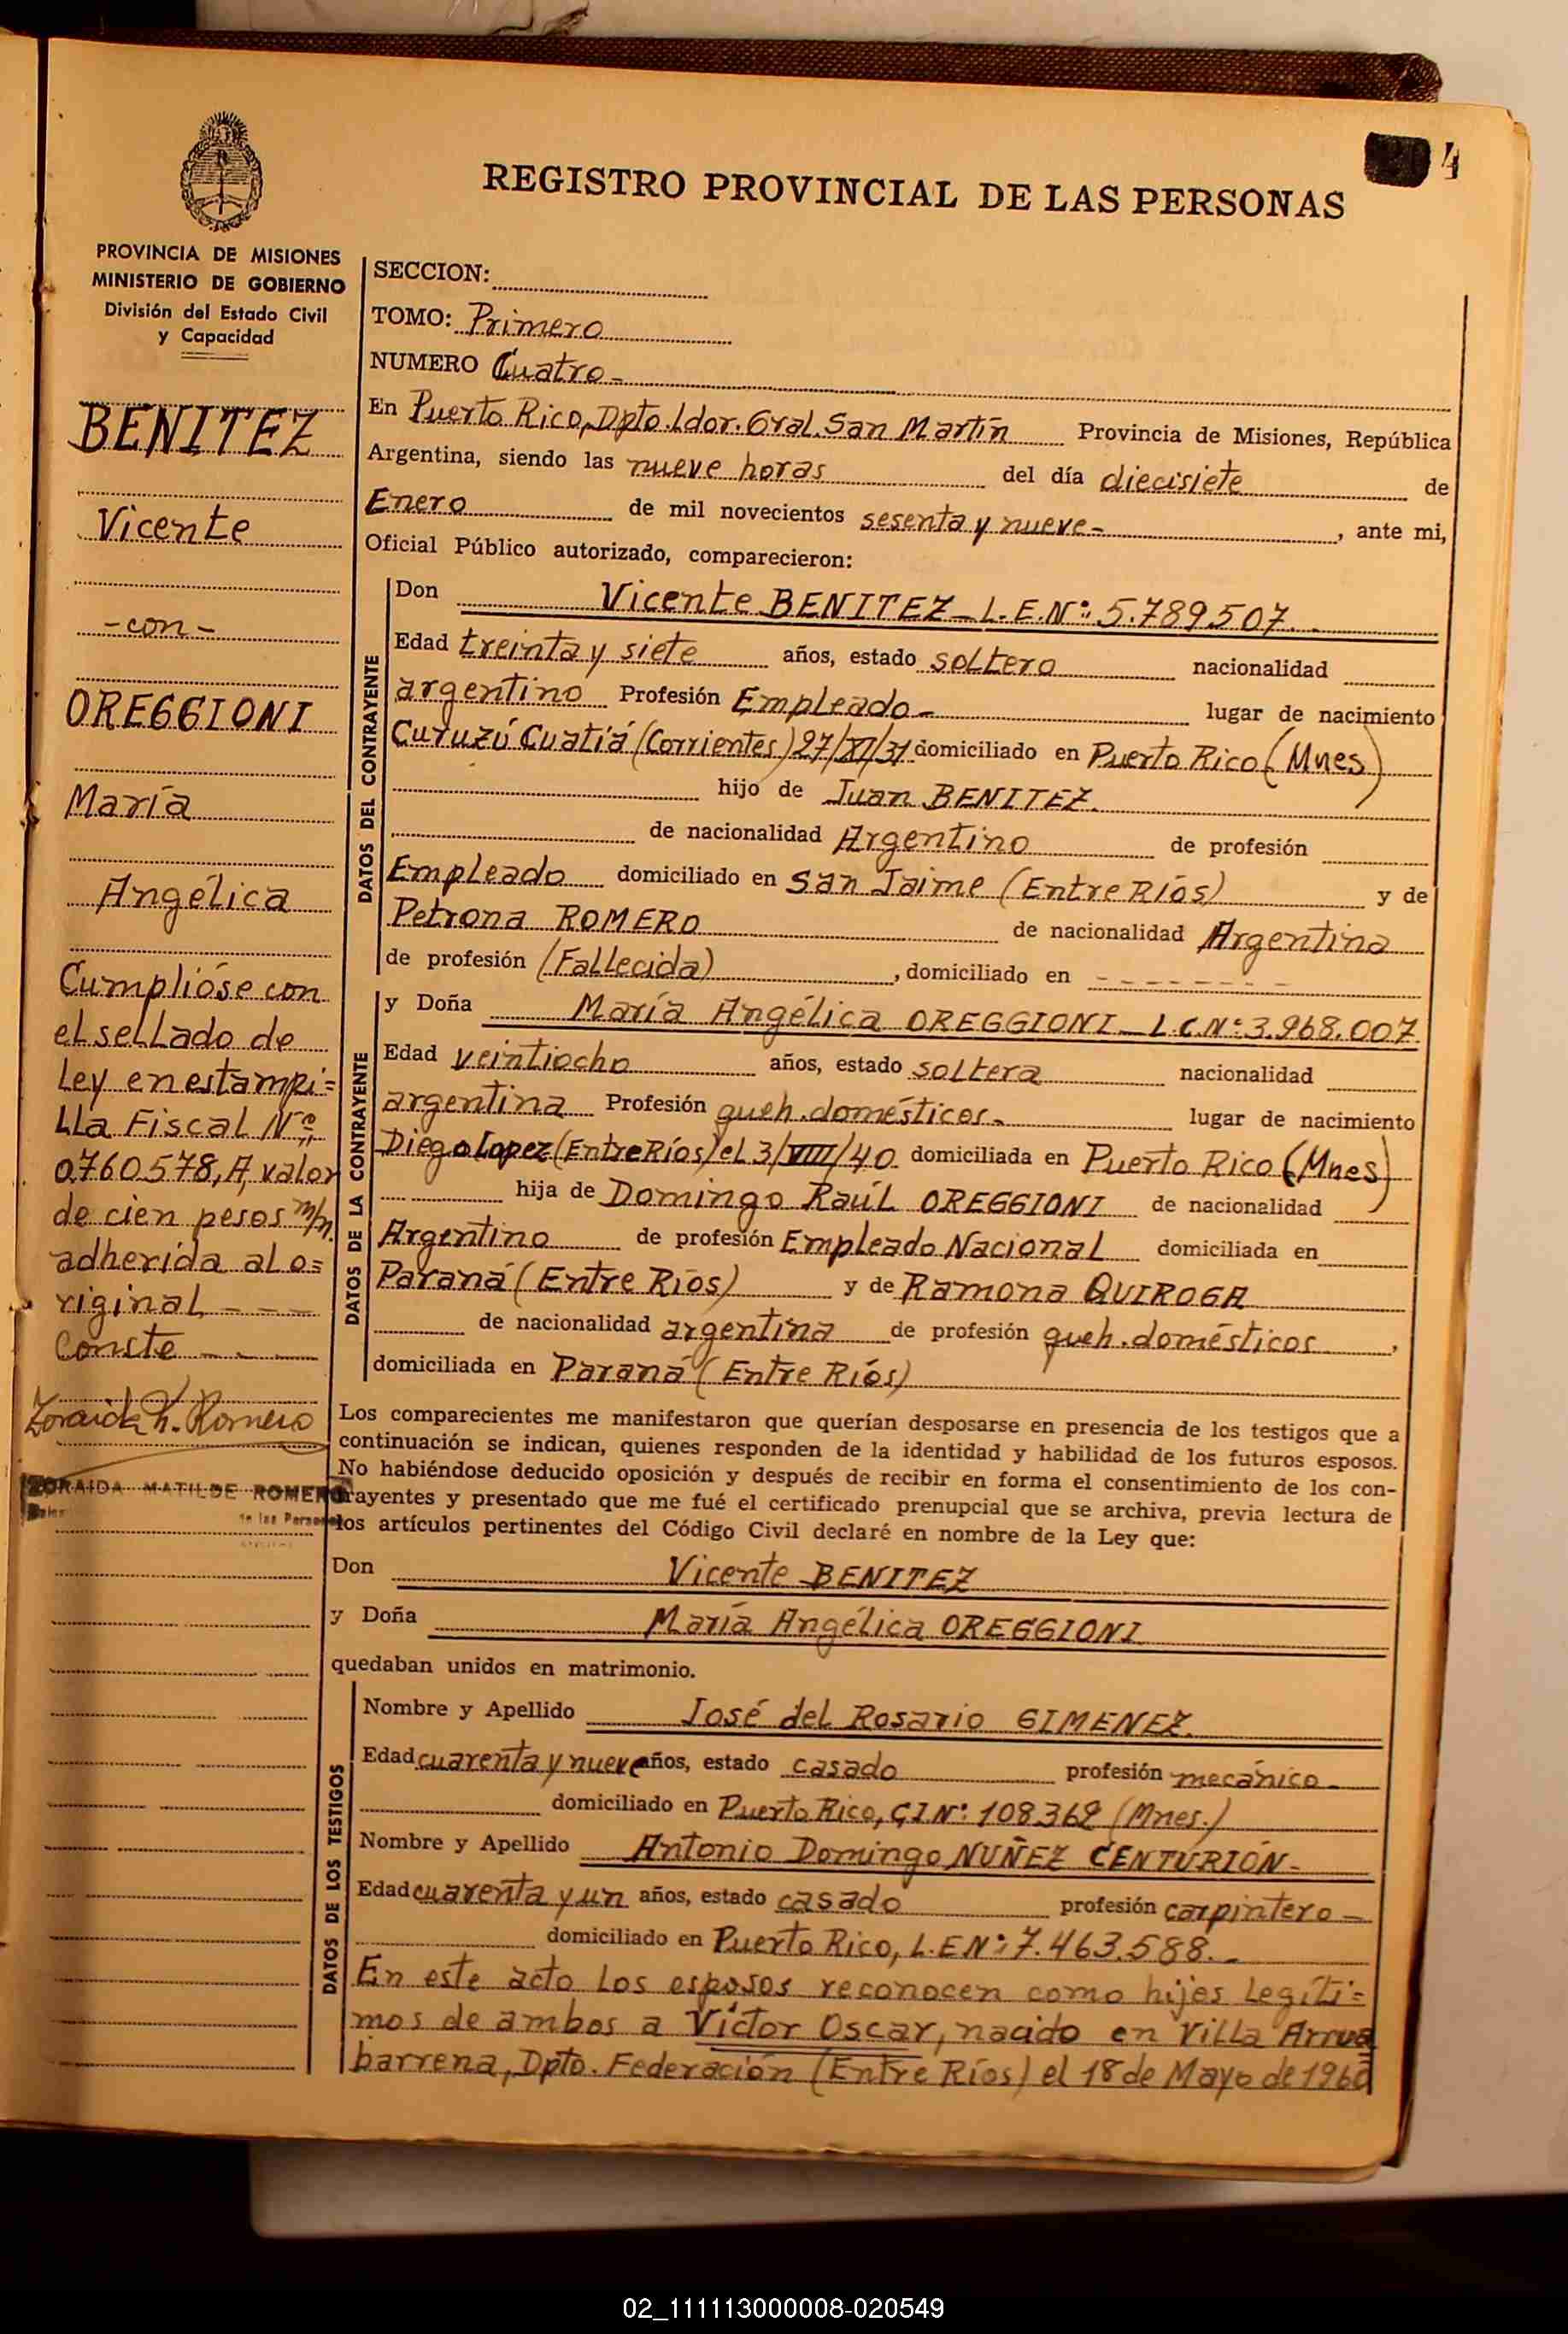 4
REGISTRO PROVINCIAL DE LAS PERSONAS
PROVINCIA DE MISIONES
MINISTERIO DE GOBIERNO
División del Estado Civil
y Capacidad
BENITEZ
Vicente
-con-
OREGGIONI
María
Angélica
Cumplióse con
el sellado de
Ley en estampi=
lla Fiscal Nº
0760578, A, valor
de cien pesos m/n.
adherida al o=
riginal - - -
Conste - - -
Zoraida M. Romero
ZORAIDA MATILDE ROMERO
de las Personas
SECCION:
TOMO: Primero
NUMERO Cuatro-
En Puerto Rico, Dpto. Ldor. Gral. San Martín Provincia de Misiones, República
Argentina, siendo las nueve horas del día diecisiete de
Enero de mil novecientos sesenta y nueve-, ante mi,
Oficial Público autorizado, comparecieron:
DATOS DEL CONTRAYENTE
Don Vicente BENITEZ - L.E.Nº: 5.789.507.
Edad treinta y siete años, estado soltero nacionalidad
argentino Profesión Empleado- lugar de nacimiento
Curuzú Cuatiá (Corrientes) 27/XI/31 domiciliado en Puerto Rico (Mnes)
hijo de Juan BENITEZ.
de nacionalidad Argentino de profesión
Empleado domiciliado en San Jaime (Entre Ríos) y de
Petrona ROMERO de nacionalidad Argentina
de profesión (Fallecida), domiciliado en - - - - - - -
DATOS DE LA CONTRAYENTE
y Doña María Angélica OREGGIONI - L.C.Nº: 3.968.007
Edad veintiocho años, estado soltera nacionalidad
argentina Profesión queh. domésticos- lugar de nacimiento
Diego Lopez (Entre Ríos) el 3/VIII/40 domiciliada en Puerto Rico (Mnes)
hija de Domingo Raúl OREGGIONI de nacionalidad
Argentino de profesión Empleado Nacional domiciliada en
Paraná (Entre Ríos) y de Ramona QUIROGA
de nacionalidad argentina de profesión queh. domésticos,
domiciliada en Paraná (Entre Ríos)
Los comparecientes me manifestaron que querían desposarse en presencia de los testigos que a
continuación se indican, quienes responden de la identidad y habilidad de los futuros esposos.
No habiéndose deducido oposición y después de recibir en forma el consentimiento de los con-
trayentes y presentado que me fué el certificado prenupcial que se archiva, previa lectura de
los artículos pertinentes del Código Civil declaré en nombre de la Ley que:
Don Vicente BENITEZ
y Doña María Angélica OREGGIONI
quedaban unidos en matrimonio.
DATOS DE LOS TESTIGOS
Nombre y Apellido José del Rosario GIMENEZ.
Edad cuarenta y nueve años, estado casado profesión mecánico-
domiciliado en Puerto Rico, C.I.Nº: 108.362 (Mnes.)
Nombre y Apellido Antonio Domingo NUÑEZ CENTURIÓN-
Edad cuarenta y un años, estado casado profesión carpintero-
domiciliado en Puerto Rico, L.E.Nº: 7.463.588.-
En este acto los esposos reconocen como hijos legíti=
mos de ambos a Víctor Oscar, nacido en Villa Arrua
barrena, Dpto. Federación (Entre Ríos) el 18 de Mayo de 1960
02_111113000008-020549